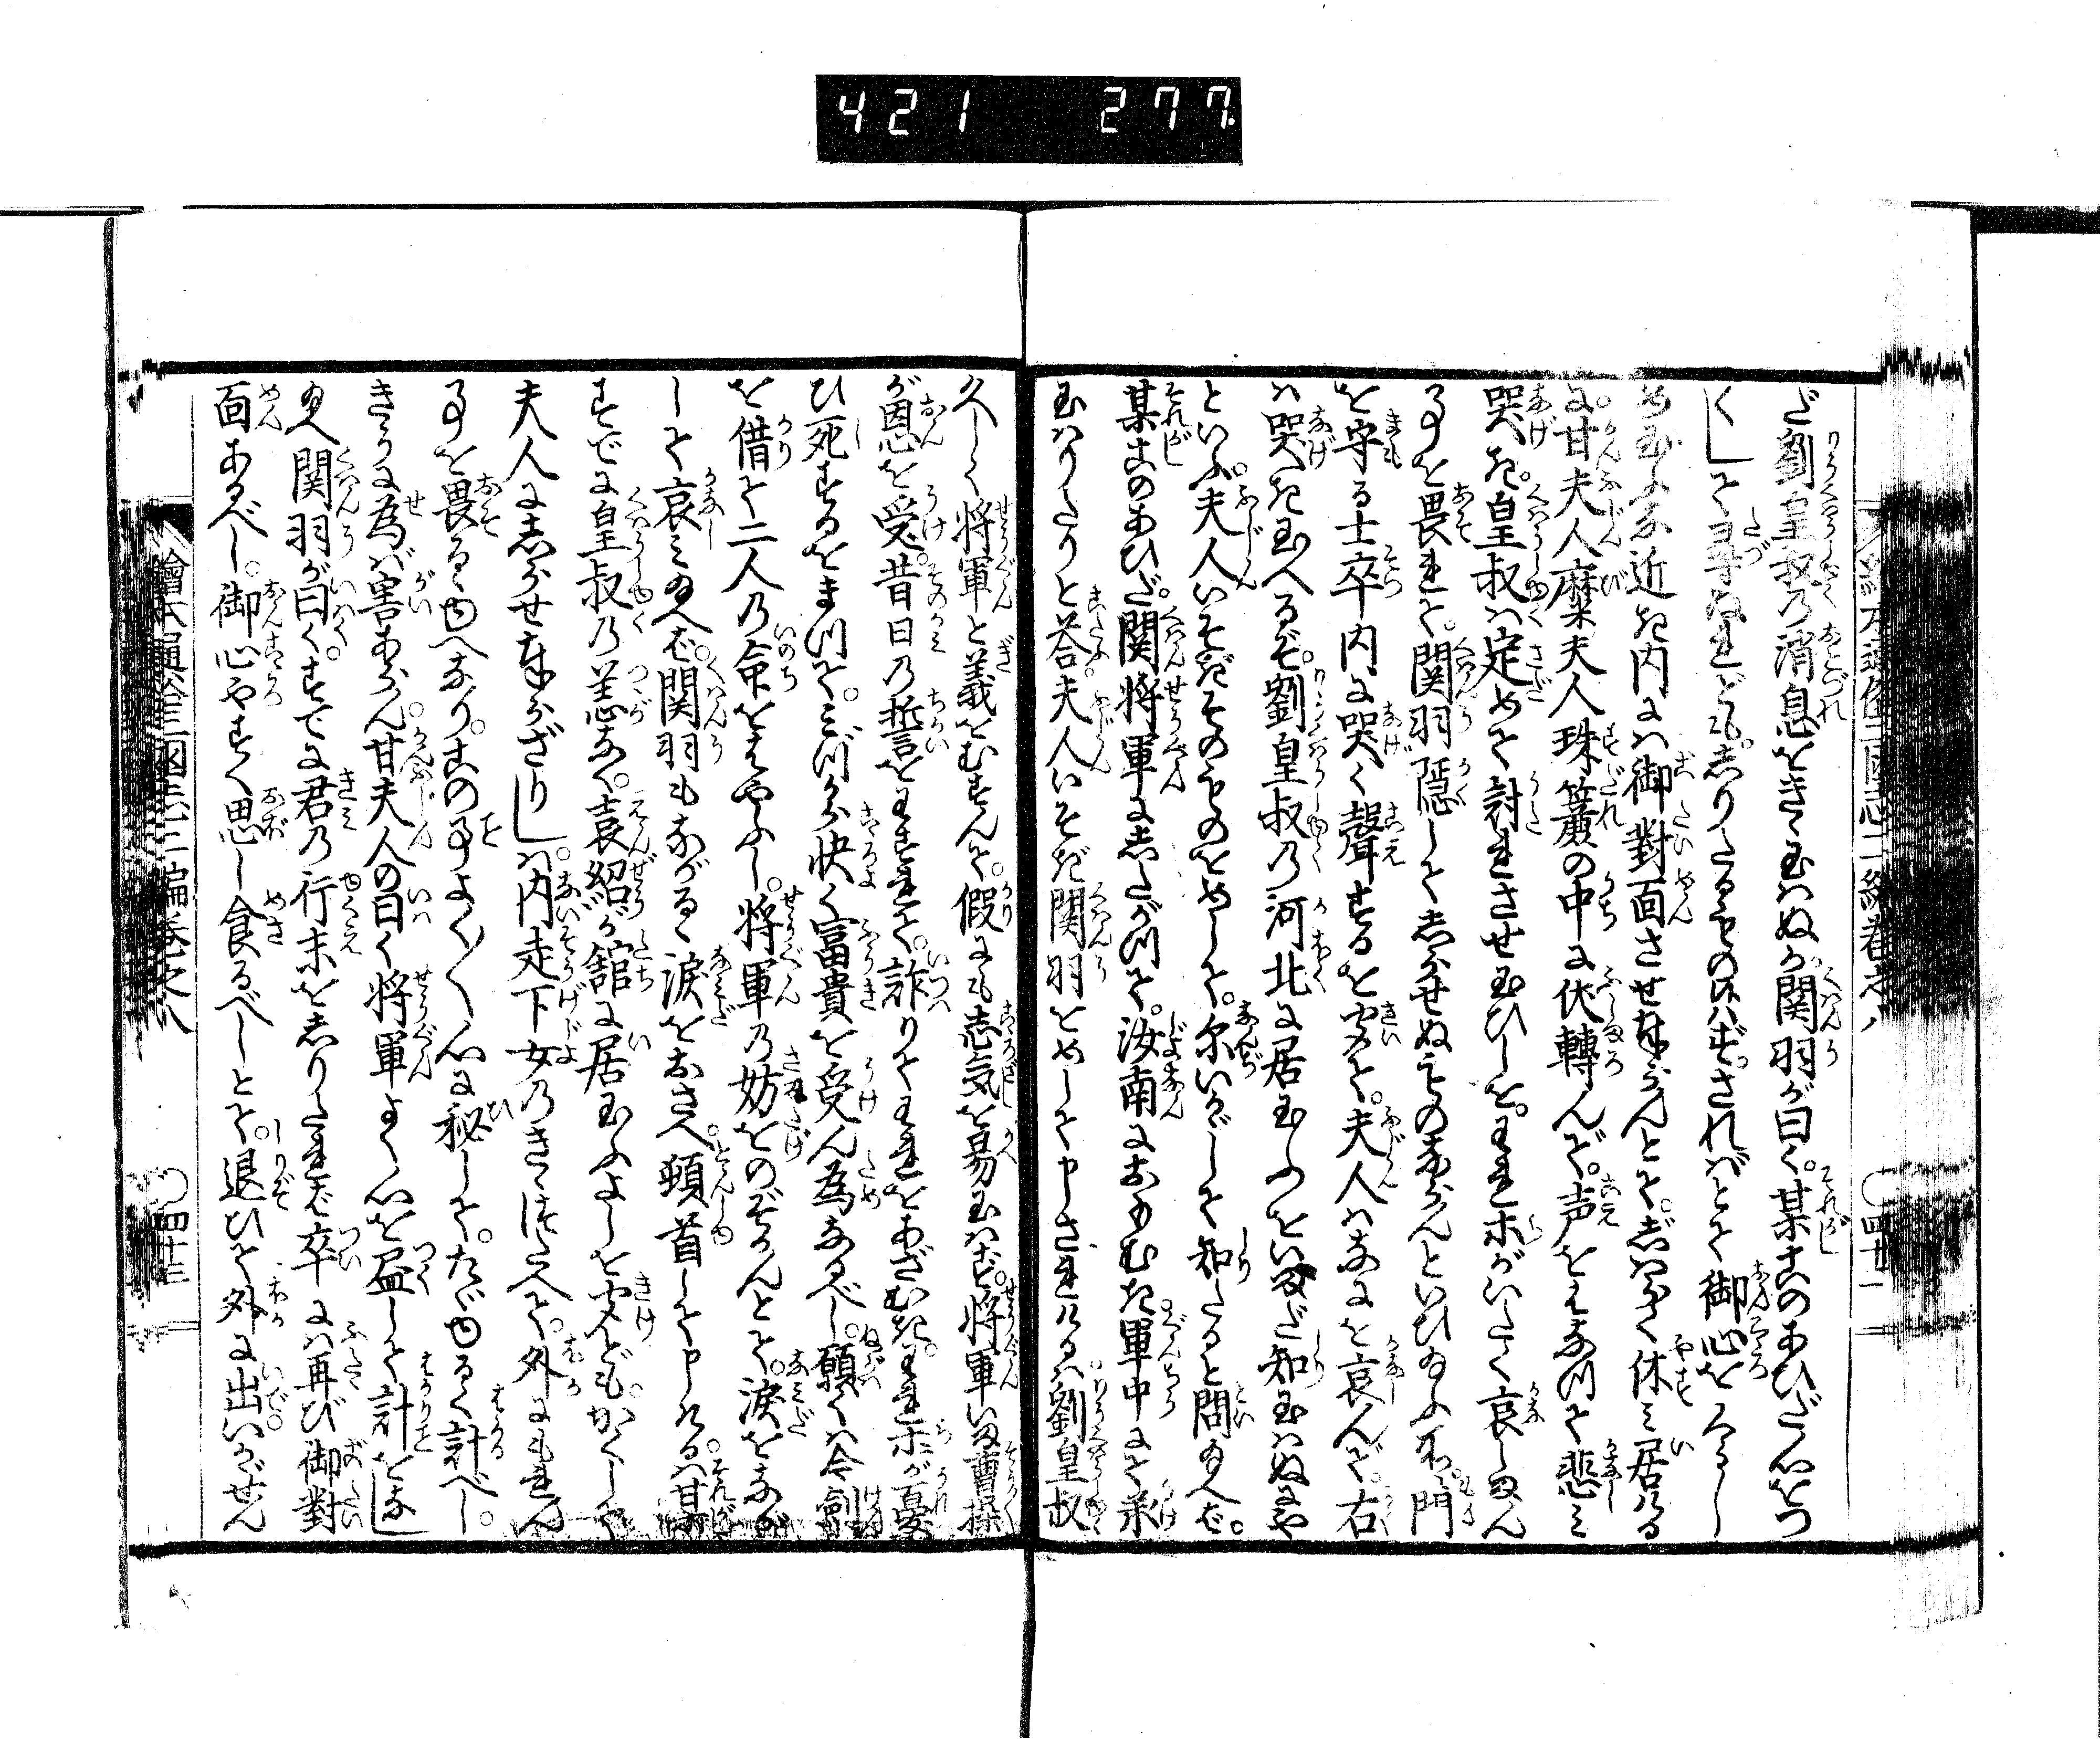 421 277
繪本通俗三國志二編巻之八 〇四十二
だ劉皇叔乃消息をきゝ玉はぬか関羽が曰く某このあひだ心をつ
くして尋ぬれどもしりたるものはずされバとて御心をくるし
め玉ふな近き内には御對面させ奉らんとてしバらく休み居ける
に甘夫人麋夫人珠簾の中に伏轉んで声をはなつて悲み
哭き皇叔ハ定めて討れさせ玉ひしを我ホがいたく哀しまん
事を畏れて関羽隠して志らせぬものならんといひ玉ふ所門
を守る士卒内に哭く聲するを聞て夫人ハなにを哀んで右
ハ哭き玉へるぞ劉皇叔乃河北に居玉ふをいまだ知玉はぬにや
といふ夫人いそぎそのものをめして尓いかゞして知たると問玉へば
某このあひだ関将軍に志たがつて汝南におもむき軍中にて承
玉はりたりと答夫人いそぎ関羽をめして申されけるハ劉皇叔
久しく将軍と義をむすんで假にも志気を易玉はず将軍いま曹操
が恩を受昔日乃誓をわすれて詐りてわれをあざむき我ホが憂
ひ死するをまつてみづから快く富貴を受ん為なるべし願くハ今劍
を借て二人乃命をはやふし将軍乃妨をのぞかんとて涙をなが
して哀み玉へば関羽もながるゝ涙をおさへ頓首して申けるハ某
すでに皇叔乃恙なく袁紹が舘に居玉ふよしを聞ども かくして
夫人に志らせ奉らざりしハ内走下女乃きゝ伝へて外にもれん
事を畏るゝゆへなりこの事よく〳〵心に秘してたゞゆるく計べし
きうに為バ害あらん甘夫人の曰く将軍よく心を盡して計をなし
玉へ関羽が曰くすでに君乃行末を志りたれば卒にハ再び御對
面あるべし御心やすく思し食るべしとて退ひて外に出いかゞせん
繪本通俗三國志二編巻之八 〇四十三